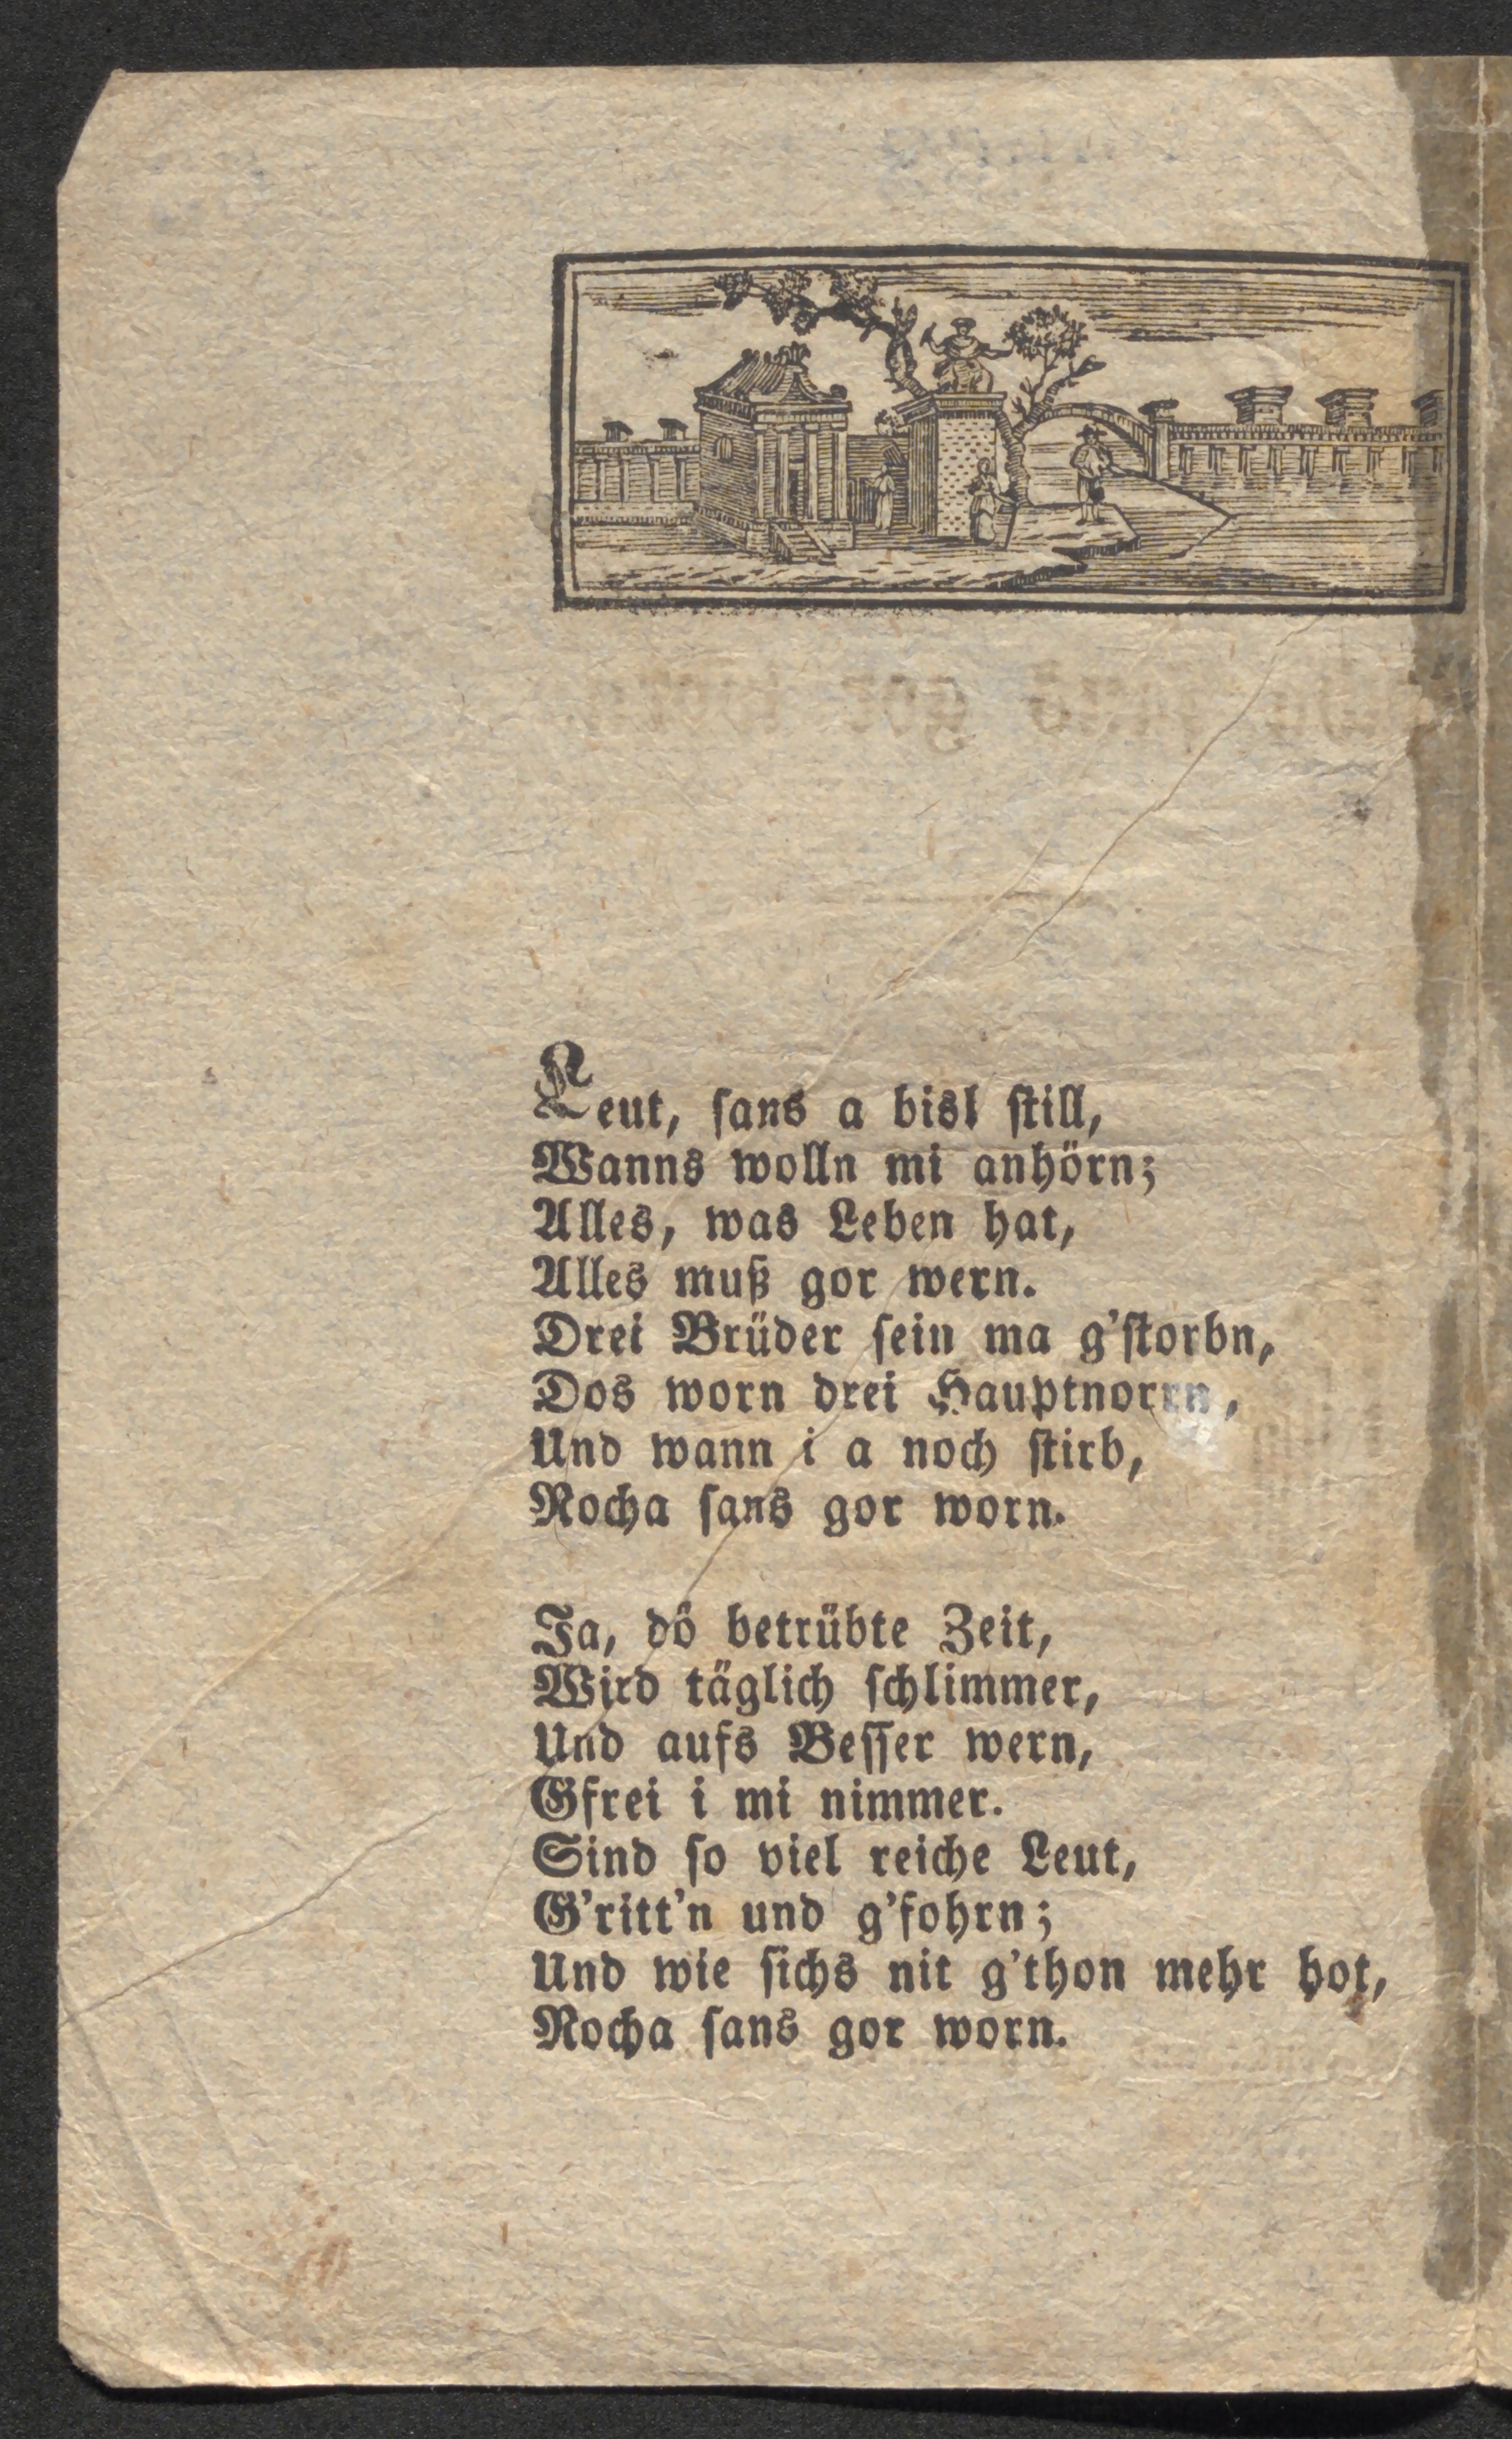 Leut, ſans a bisl ſtill,
Wanns wolln mi anhörn;
Alles, was Leben hat,
Alles muß gor wern.
Drei Brüder ſein ma g'ſtorbn,
Dos worn drei Hauptnorrn,
Und wann i a noch ſtirb,
Nocha ſans gor worn.
Ja, dö betrübte Zeit,
Wird täglich ſchlimmer,
Und aufs Beſſer wern,
Gfrei i mi nimmer.
Sind ſo viel reiche Leut,
G'ritt'n und g'fohrn;
Und wie ſichs nit g'thon mehr hot,
Nocha ſans gor worn.